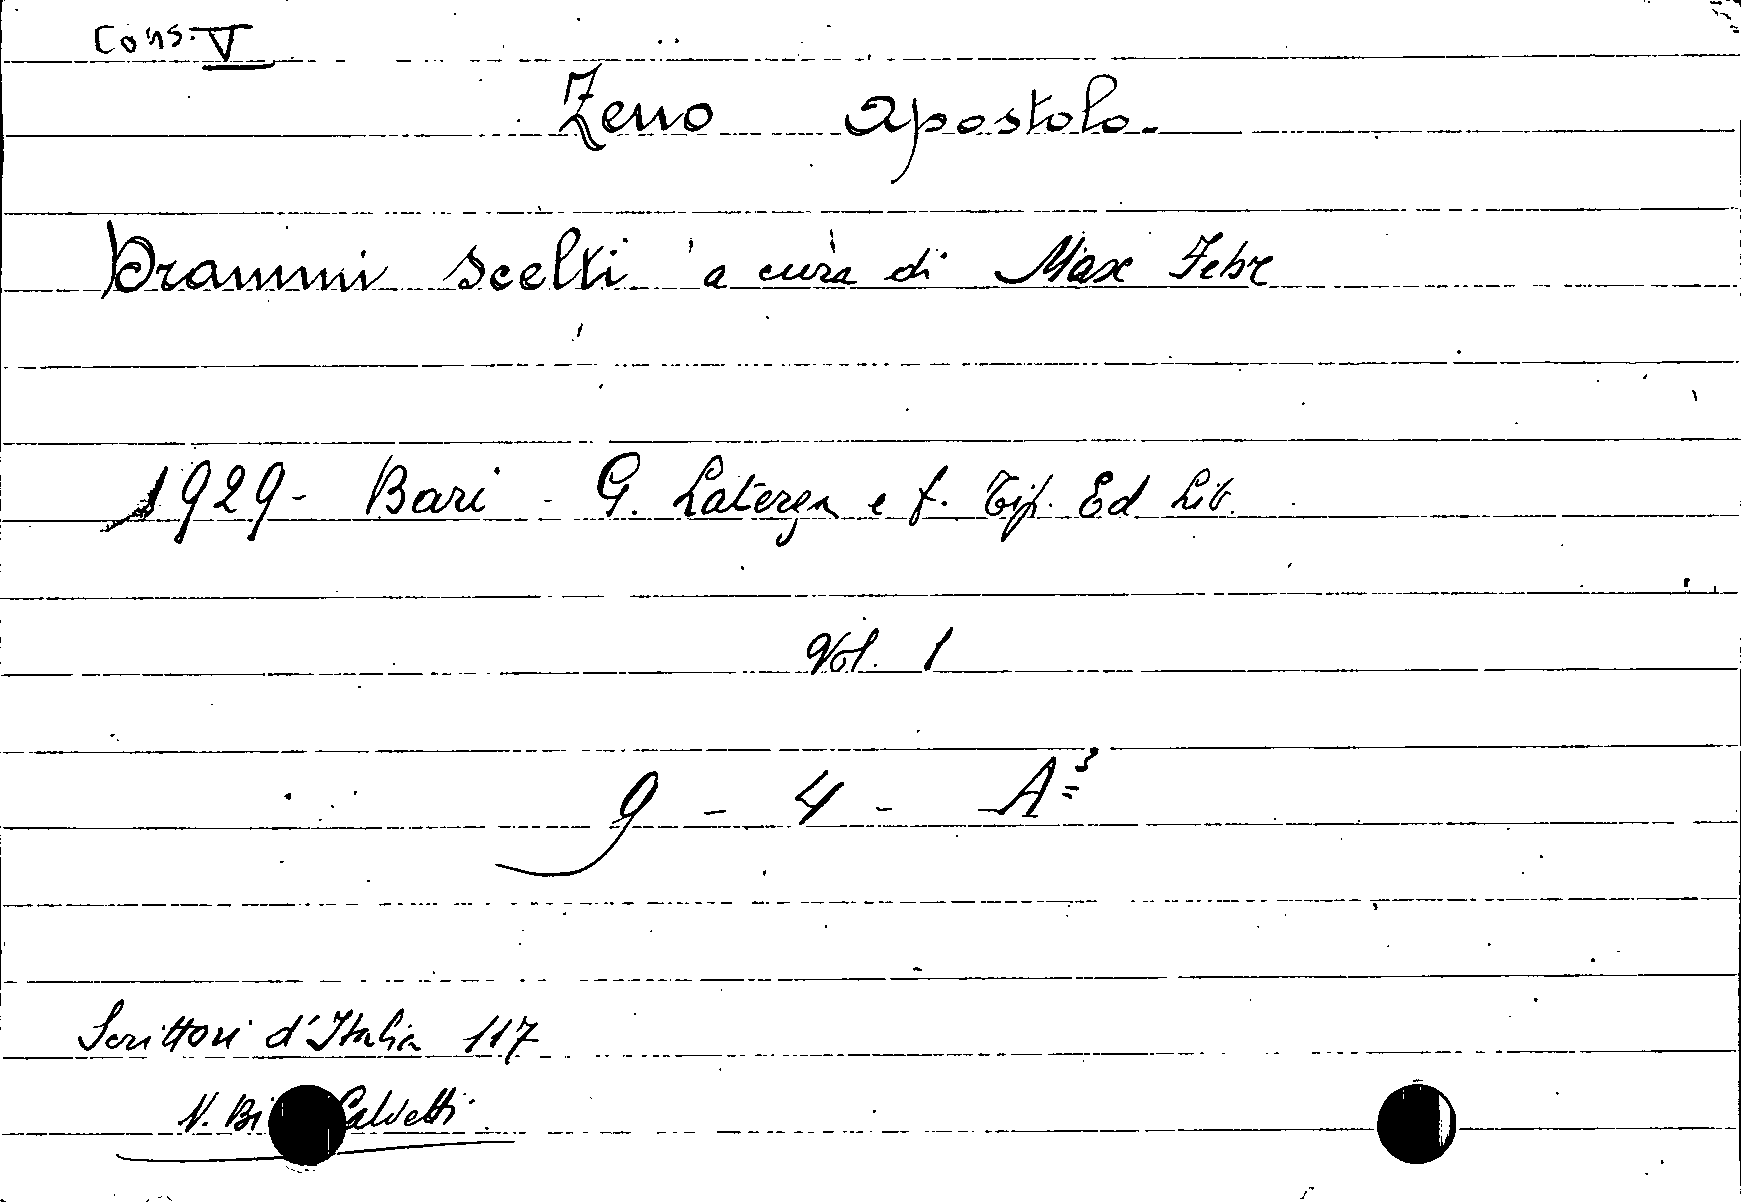 Cons. V
Zeno Apostolo.
Drammi scelti a cura di Max Fehr
1929 - Bari - G. Laterza e f. Tip. Ed Lib.
Vol. 1
9 - 4 - A³
Scrittori d'Italia 117
N. Bi Calvetti